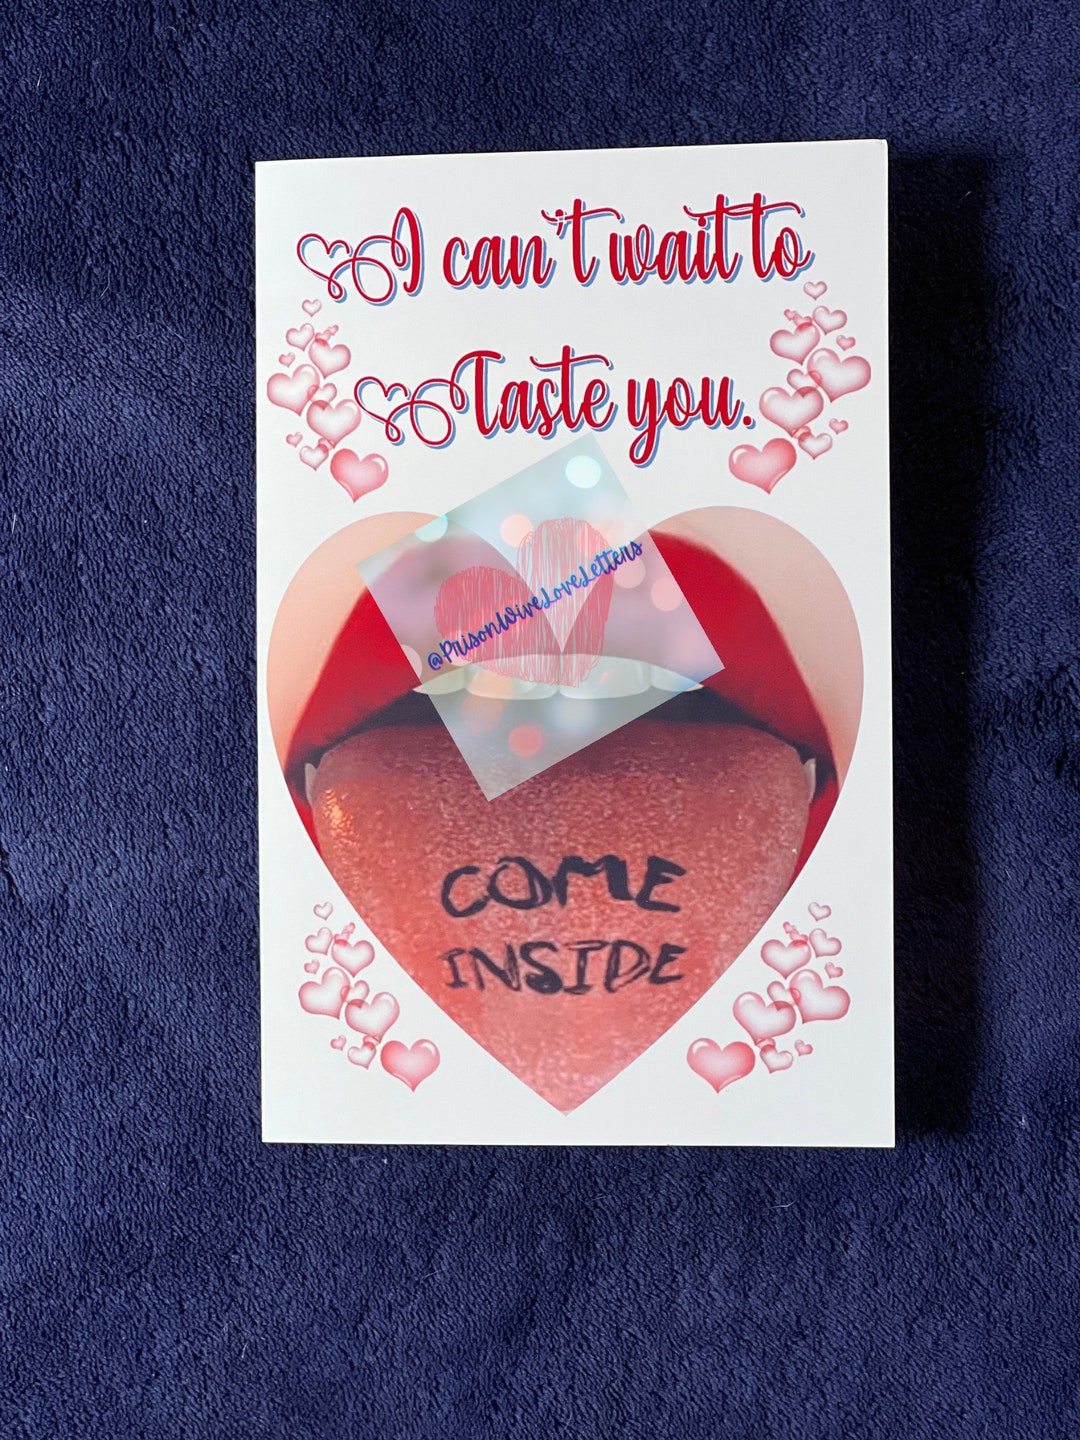 I can't wait to
Taste you.
@PrisonWiveLoveLetters
COME
INSIDE